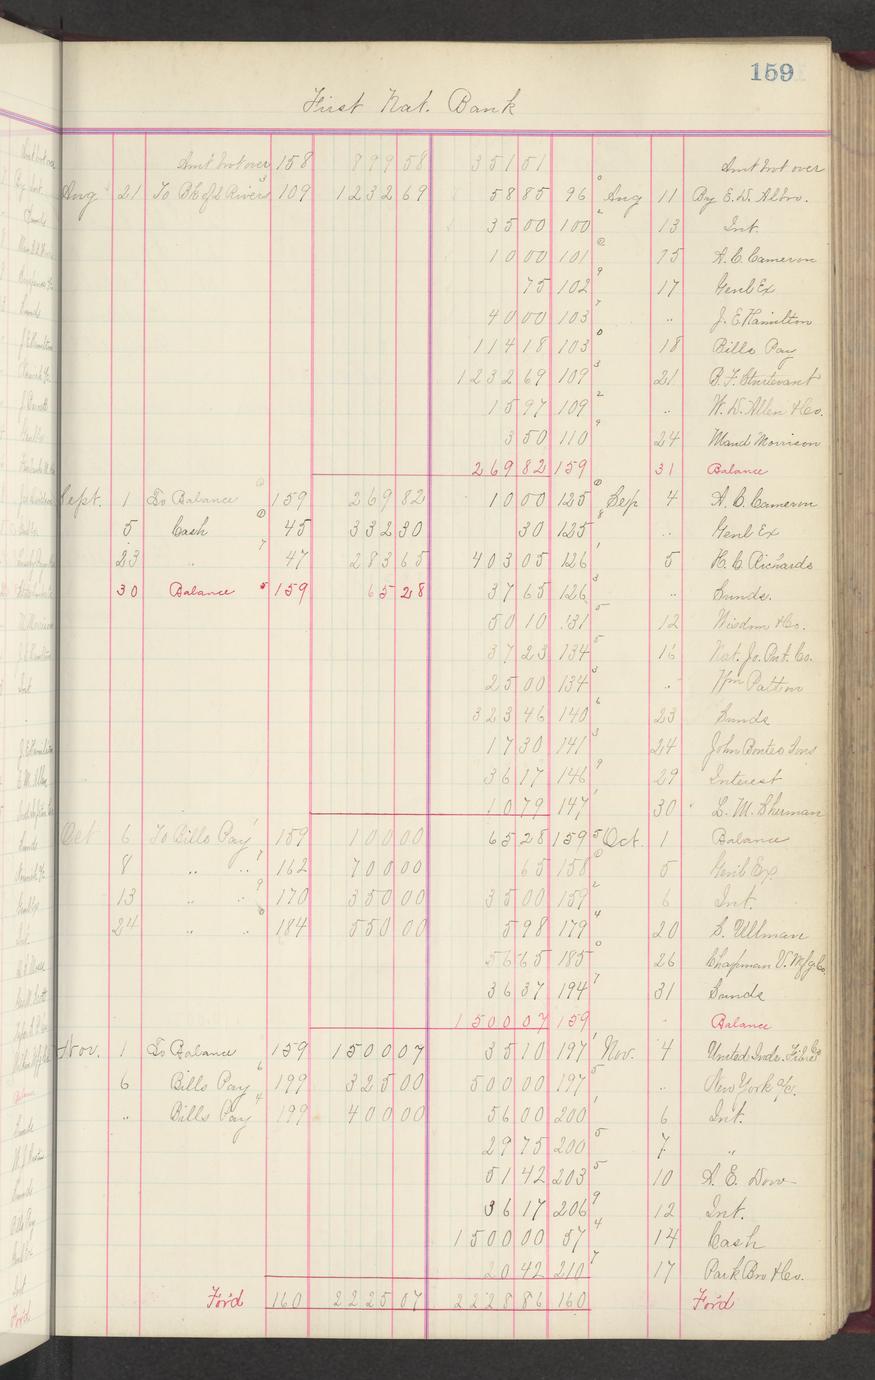 159
First Nat. Bank
Amt brot over 158 899 58 351 51 Amt brot over
Aug 21 To Bk of 3 Rivers 109 1232 69 58 85 96 Aug 11 By E. W. Allro.
35 00 100 13 Int.
10 00 101 15 A. C. Cameron
75 102 17 Genl Ex
40 00 103 " J. E. Hamilton
114 18 103 18 Bills Pay
1232 69 109 21 B. F. Sturtevant
15 97 109 " W. D. Allen & Co.
3 50 110 24 Maud Morrison
269 82 159 31 Balance
Sept. 1 To Balance 159 269 82 10 00 125 Sep 4 A. C. Cameron
5 Cash 45 332 30 30 125 " Genl Ex
23 " 47 283 65 403 05 126 5 H. C. Richards
30 Balance 159 65 28 37 65 126 " Sunds.
50 10 131 12 Wisdom & Co.
37 23 134 16 Nat. Jo. Pnt. Co.
25 00 134 " Wm Patton
323 46 140 23 Sunds
17 30 141 24 John Bontes Sons
36 17 146 29 Interest
10 79 147 30 L. M. Sherman
Oct 6 To Bills Pay 159 100 00 65 28 159 Oct. 1 Balance
8 " " 162 700 00 65 158 5 Genl Ex.
13 " " 170 350 00 35 00 159 6 Int.
24 " " 184 550 00 5 98 179 20 S. Ullman
56 65 185 26 Chapman V. Mfg Co.
36 37 194 31 Sunds
1500 07 159 " Balance
Nov. 1 To Balance 159 1500 07 35 10 197 Nov. 4 United Indr. Fibre Co
6 Bills Pay 199 325 00 500 00 197 " New York a/c.
" Bills Pay 199 400 00 56 00 200 6 Int.
29 75 200 7 "
51 42 203 10 A. E. Dow
36 17 206 12 Int.
1500 00 57 14 Cash
20 42 210 17 Park Bro & Co.
For'd 160 2225 07 2228 86 160 For'd